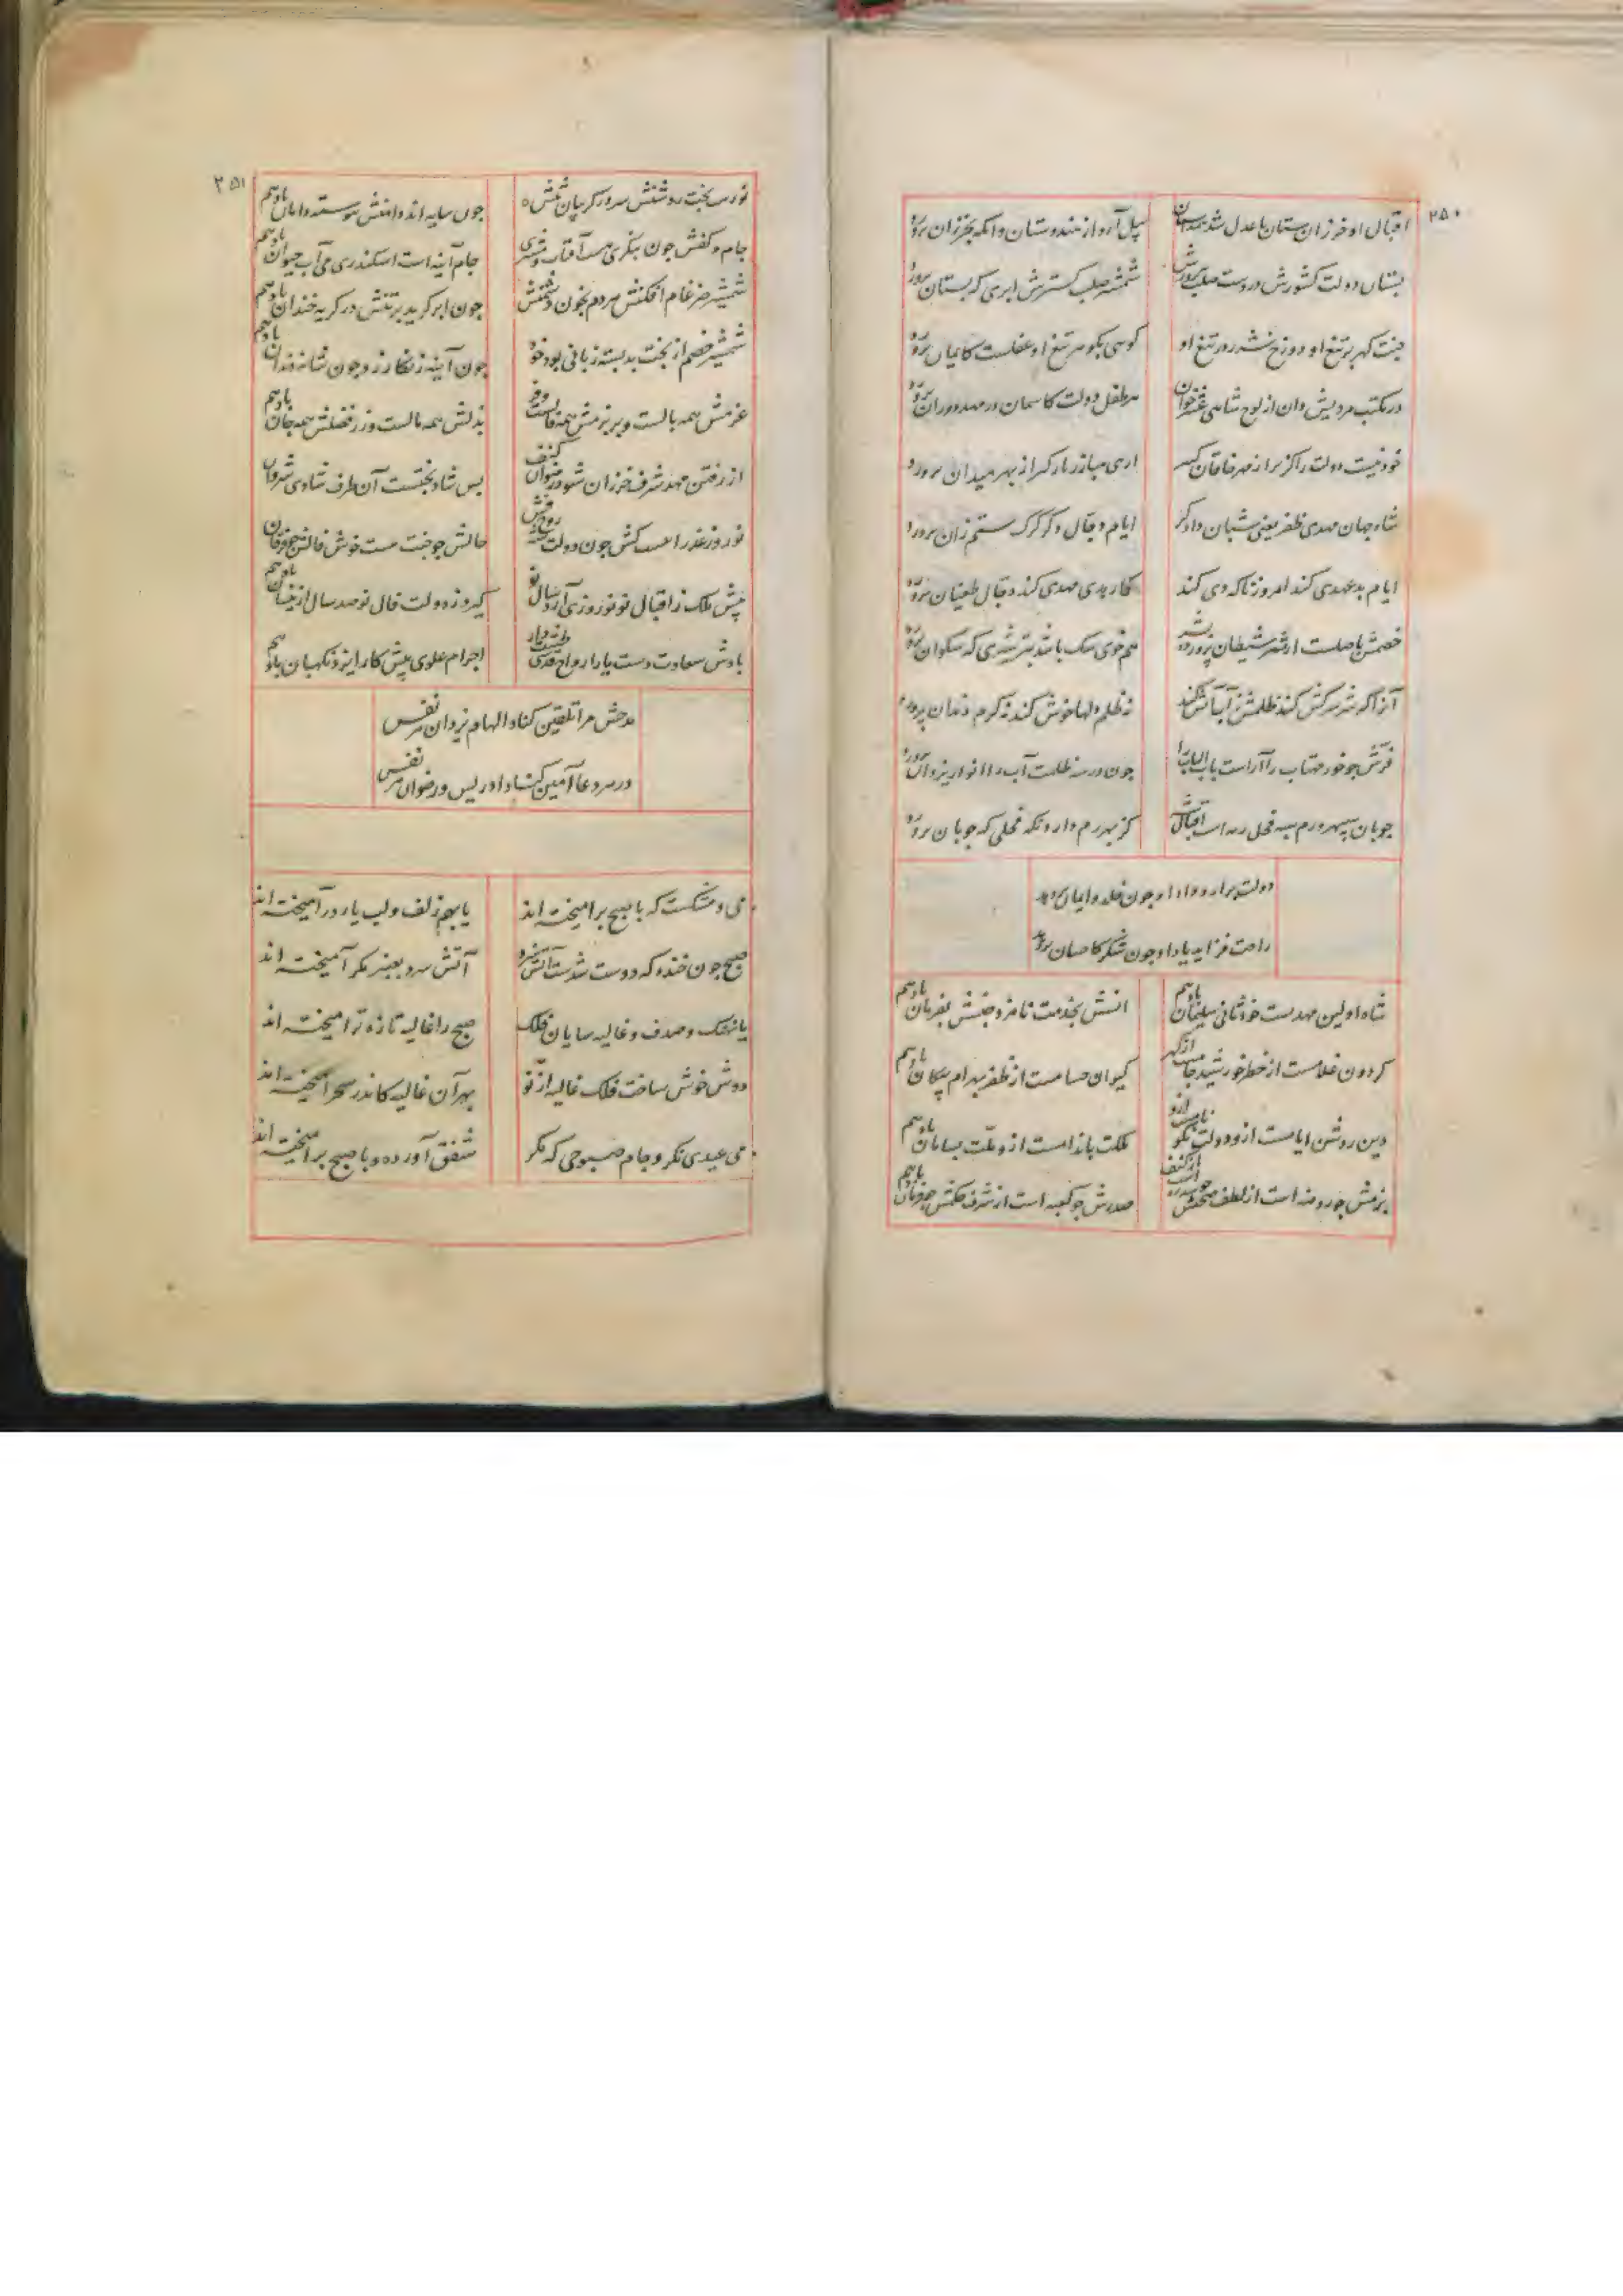 ۲۵۰
اقبال او خرزان ستان با عدل شد همداستان پیل آرد از هندوستان وانگه بخزران پرورد
بستان دولت کشورش در دست صلب پرورش شمشیر صلب گسترش ابری که بستان پرورد
جنت گهر بر تیغ او دوزخ شرر در تیغ او گوئی بگو هر تیغ او عفلست کایمان پرورد
در مکتب مردیش دان از لوح شاهی عشرخوان هر طفل دولت کاسمان در مهد دوران پرورد
خود نیست دولت را گزیر از مهر خاقان کبیر آری مبارز بارگیر از بهر میدان پرورد
شاه جهان مهدی ظفر یعنی شبان دادگر ایام دجال دگر گرگ ستم زان پرورد
ایام بدعهدی کند امروز تا که دی کند کار بدی مهدی کند دجال طغیان پرورد
خصمش با صلست از شر شیطان پرورده هم خوی سگ باشد بتر شیری که سگوان پرورد
آنرا که شه سرکش کند ظلمش زآب آتش کند نه ظلم دلها خوش کند نه کرم دندان پرورد
فرش چو خور مهتاب را آراست باب الباب را چون در سه ظلمت آب را انوار یزدان پرورد
چوپان سپهر و رم سپه فحل رمه است اقبال شه کز بهر رم دارد نگه فحلی که چوپان پرورد
دولت برآرد داد او چون خلد و ایمان پرورد
راحت فزاید یاد او چون شکر کاحسان پرورد
شاه اولین مهدیست خود ثانی سلیمان باد هم انسش بخدمت نامزد جنش بفرمان باد هم
گردون غلامست از خطر خورشید جامست از گهر کیوان حسامست از ظفر بهرام پیکان باد هم
دین روشن ایامست ازو دولت نکو نامست ازو ملکت باندامست ازو ملت بسامان باد هم
بزمش چو روضه است از لطف صحنش چو سدره است از کنف صدرش چو کعبه است از شرف حکمش چو فرمان باد هم
۲۵۱
نور سر بخت روشنش سرور گریبان تنش چون سایه اندر دامنش پیوسته دامان باد هم
جام و کفش چون بنگری هست آفتاب و مشتری جام آینه است اسکندری می آب حیوان باد هم
شمشیر ضرغام افکنش هردم بخون دشمنش چون ابر گرید بر تنش در گریه خندان باد هم
شمشیر خصم از بخت بد بسته زبانی بود خود چون آینه زنگار زد چون شانه دندان باد هم
عزمش همه بالست و پر بزمش همه فالست و فر بذلش همه مالست و زر فضلش همه جان باد هم
از رفتن مهد شرف خزران شود رضوان کنف بس شاد بختست آن طرف شادی شروان
نوروز عذرا هست کش چون دولت روح بخش حالش چو بخت مست خوش فالش چو فرقان باد هم
پیش ملک ز اقبال نو نوروزی آرد سال نو گیرد ز دولت فال نو صد سال ازینسان باد هم
بادش سعادت دست یار ارواح قدسی اجرام علوی پیش کار ایزد نگهبان باد هم
مدحش مرا تلقین کناد الهام یزدان هر نفس
در هر دعا آمین کناد ادریس و رضوان هر نفس
می و مشکست که با صبح برآمیخته‌اند یا بهم زلف و لب یار درآمیخته‌اند
صبح چون خنده گه دوست شدست آتش سرد آتش سرد بعنبر مگر آمیخته‌اند
یا نهنگ و صدف و غالیه سایان فلک صبح را غالیه تازه تر آمیخته‌اند
دوش خوش ساخت فلک غالیه از نو بهر آن غالیه کاندر سحر آمیخته‌اند
می عیدی نگر و جام صبوحی که مگر شفق آورده و با صبح برآمیخته‌اند